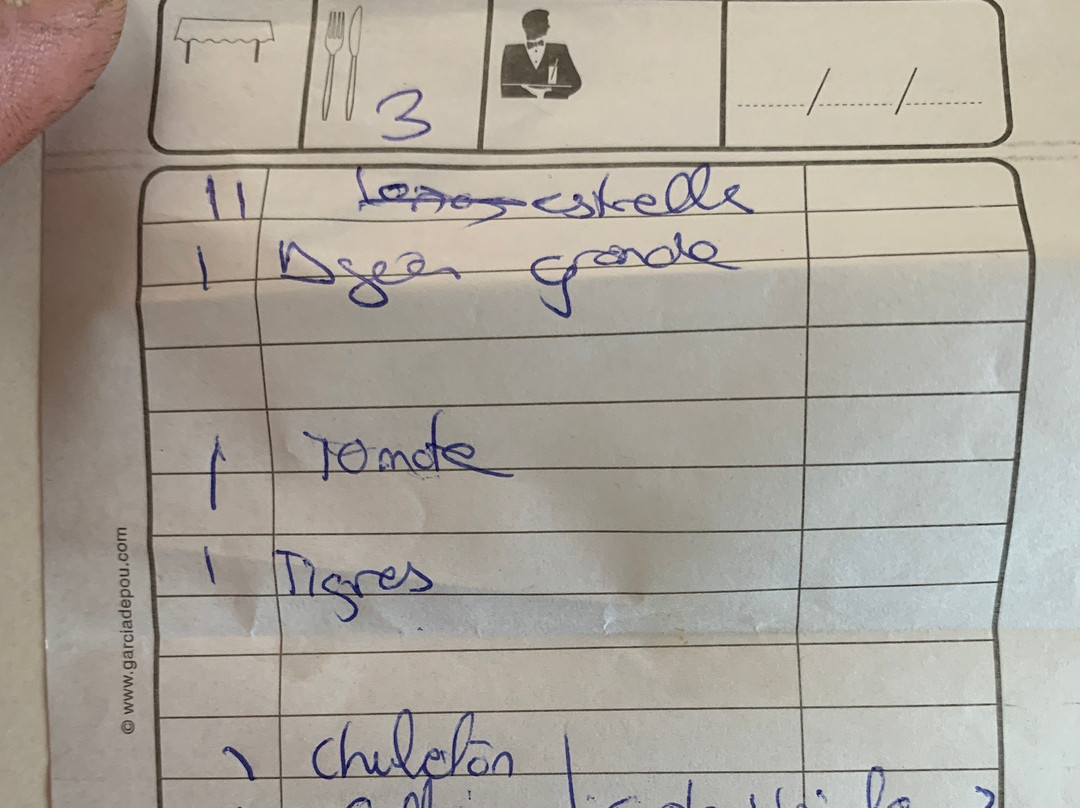 3
/ /
11 estrella
1 Agua grande
1 Tomate
1 Tigres
1 Chuletón
© www.garciadepou.com